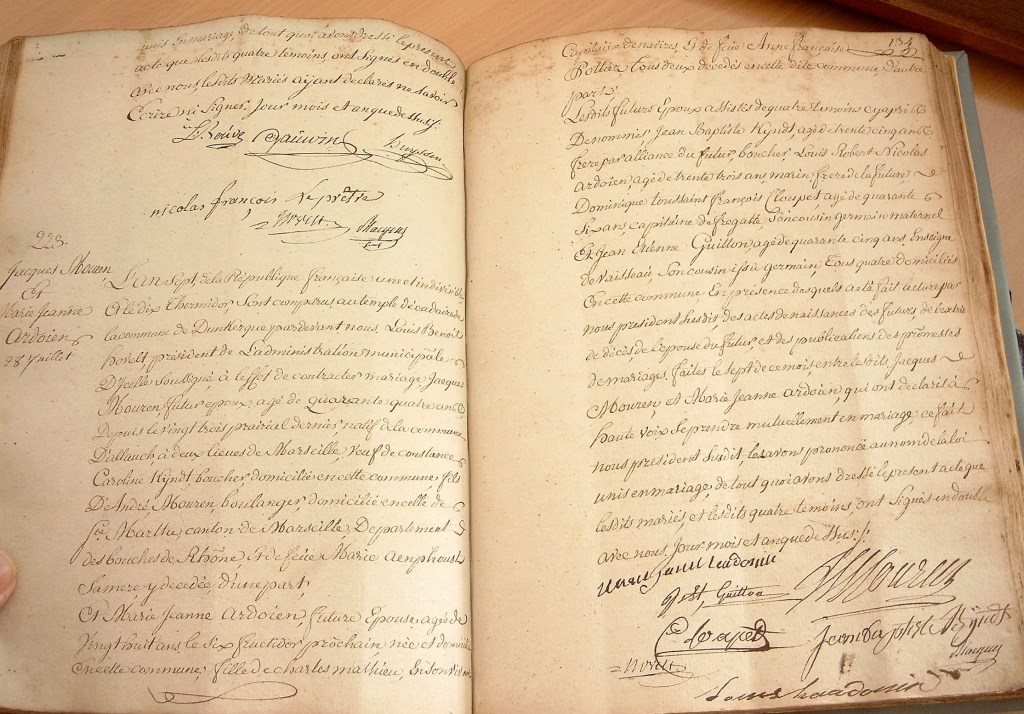 unis en mariage, de tout quoi avons dressé le present
acte que lesdits quatre temoins ont signés en double
avec nous, lesdits Mariés aÿant declarés ne savoir
Ecrire ni Signer, Jour mois et an que dessus
nicolas françois Leprêtre
223.
Jacques Mouren
Et
Marie Jeanne
Ardoien
28 Juillet
L'an Sept, de la République française une et indivisible
et le dix thermidor, sont comparus au temple décadaire de
la commune de Dunkerque pardevant nous, Louis Benoit
président de L'administration municipale
D'Icelle soussigné à L'effet de contracter mariage, Jacques
Mouren, futur epoux, agé de quarante quatre ans
Depuis le vingt trois prairial dernier, natif de la commune
D'allauch, à deux lieues de Marseille, Veuf de constance
Caroline Kÿndt, boucher domicilié en cette commune, fils
D'André Mouren, boulanger, domicilié en celle de
Ste Marthe, canton de Marseille, Departement
des bouches du Rhône, Et de feüe Marie
Sa mere y decedée, d'une part;
Et Marie Jeanne Ardoien, future Epouse, agée de
Vingt huit ans le Six fructidor prochain née et domiciliée
En cette commune, fille de charles mathieu, En son vivant
134
Capitaine de navires, Et de feüe Anne françoise
tous deux décédés en cette dite commune, d'autre
part;
Lesdits futurs Epoux assistés de quatre temoins cy après
Denommés, Jean Baptiste Kÿndt, agé de trente cinq ans
frere par alliance du futur, boucher, Louis Robert Nicolas
Ardoien, agé de trente trois ans, marin, frere de la future
Dominique toussaint françois agé de quarante
Six ans, capitaine de fregatte, son cousin germain maternel
Et Jean Etienne Guillon, agé de quarante cinq ans, Enseigne
de Vaisseau, Son cousin issu de germain, Tous quatre domiciliés
En cette commune, En présence desquels acte fait lecture par
nous president susdit des actes de naissances des futurs, de l'extrait
de décès de l'epouse du futur, et des publications des promesses
de mariages, faites le sept de ce mois, entre lesdits Jacques
Mouren, et Marie Jeanne Ardoien qui ont declarés à
haute voix se prendre mutuellement en mariage, ce fait
nous president susdit, les avons prononcé au nom de la loi
unis en mariage, de tout quoi avons dressé le present acte que
lesdits mariés, et lesdits quatre temoins, ont Signés en double
avec nous, Jour, mois et an que dessus
Guillon
Mouren
Jean Baptiste Kÿndt